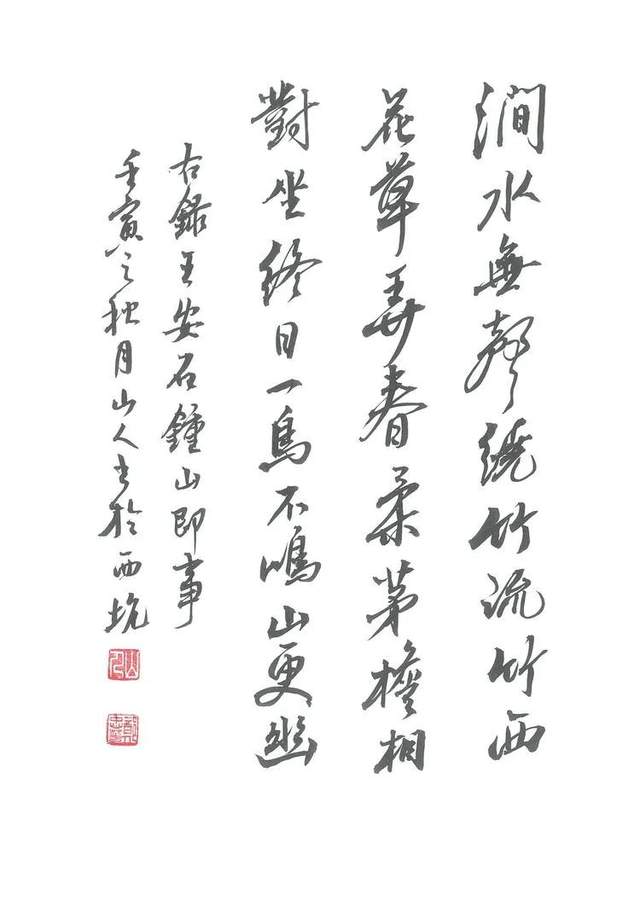 澗水無聲繞竹流竹西
花草弄春柔茅檐相
對坐終日一鳥不鳴山更幽
右錄王安石鍾山即事
壬寅之秋月山人書於西坑